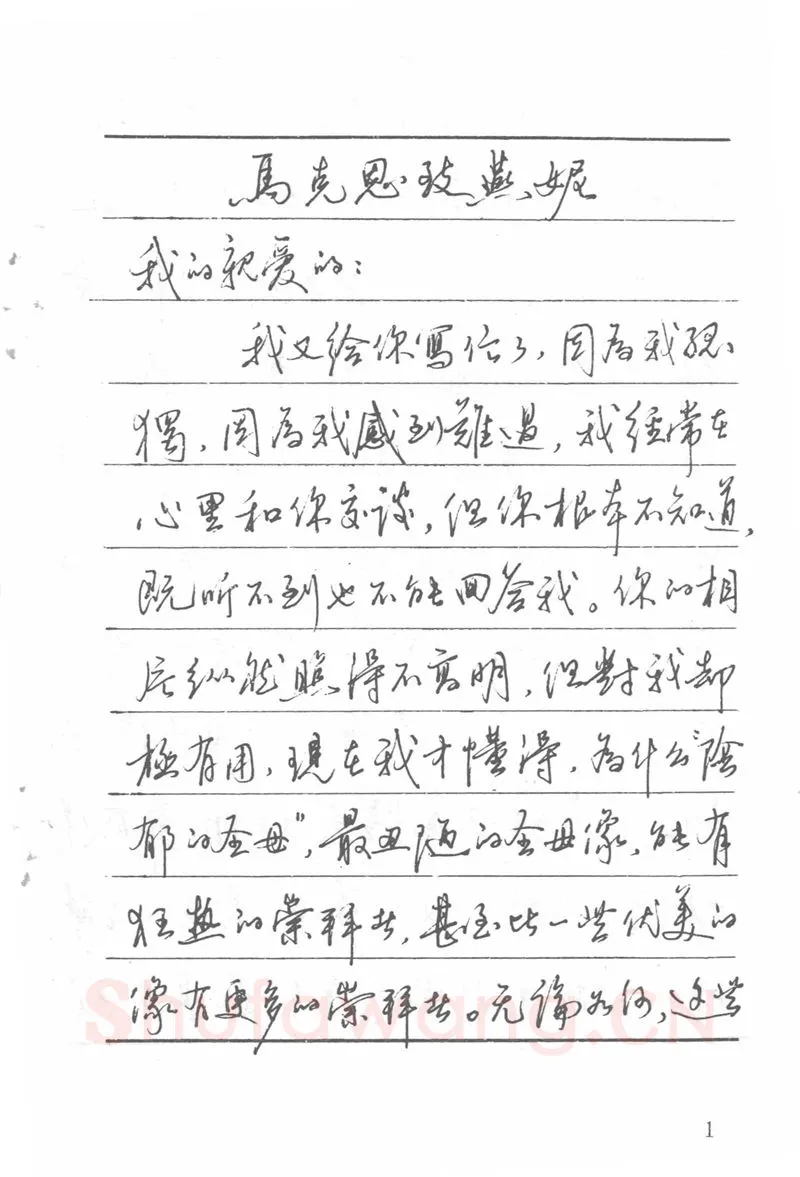 馬克思致燕妮
我的親爱的：
我又给你寫信了，因為我孤
獨，因為我感到難過，我經常在
心里和你交谈，但你根本不知道，
既听不到也不能回答我。你的相
片纵然照得不高明，但對我却
極有用，現在我才懂得，為什么“陰
郁的圣母”，最丑陋的圣母像，能有
狂热的崇拜者，甚至比一些优美的
像有更多的崇拜者。无論如何，这些
Shufawang.CN
1